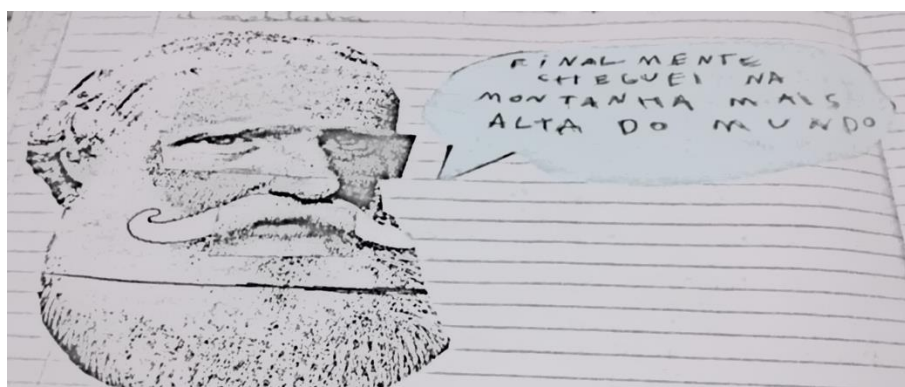 FINALMENTE
CHEGUEI NA
MONTANHA MAIS
ALTA DO MUNDO